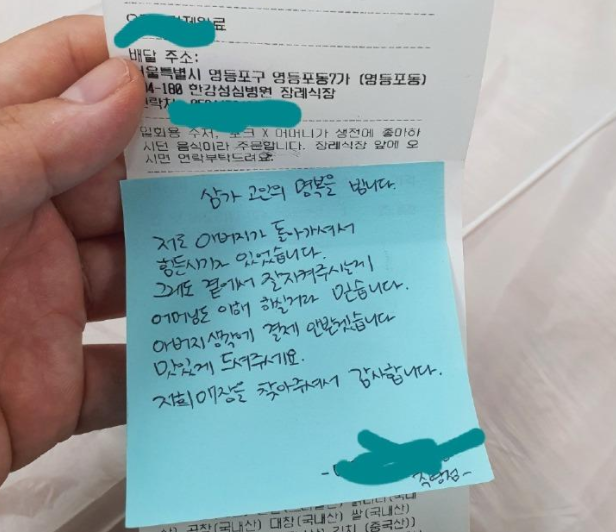 배달 주소:
서울특별시 영등포구 영등포동7가 (영등포동)
94-180 한강성심병원 장례식장
연락처
일회용 수저, 포크 X 어머니가 생전에 좋아하
시던 음식이라 주문합니다. 장례식장 앞에 오
시면 연락부탁드려요
삼가 고인의 명복을 빕니다.
저도 아버지가 돌아가셔서
힘든시기가 있었습니다.
그래도 곁에서 잘지켜주시는지
어머님도 이해 하실거라 믿습니다.
아버지생각에 결제 안받겠습니다
맛있게 드셔주세요.
저희매장을 찾아주셔서 감사합니다.
곱창(국내산) 대창(국내산) 쌀(국내산)
김치 (중국산))